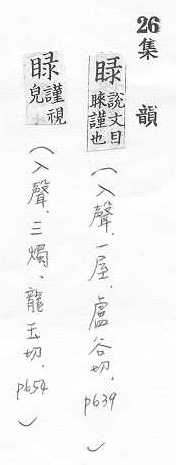 26
集韻
睩 說文目睞謹也
(入聲.一屋.盧谷切.p639)
睩 謹視皃
(入聲.三燭.龍玉切.p654)